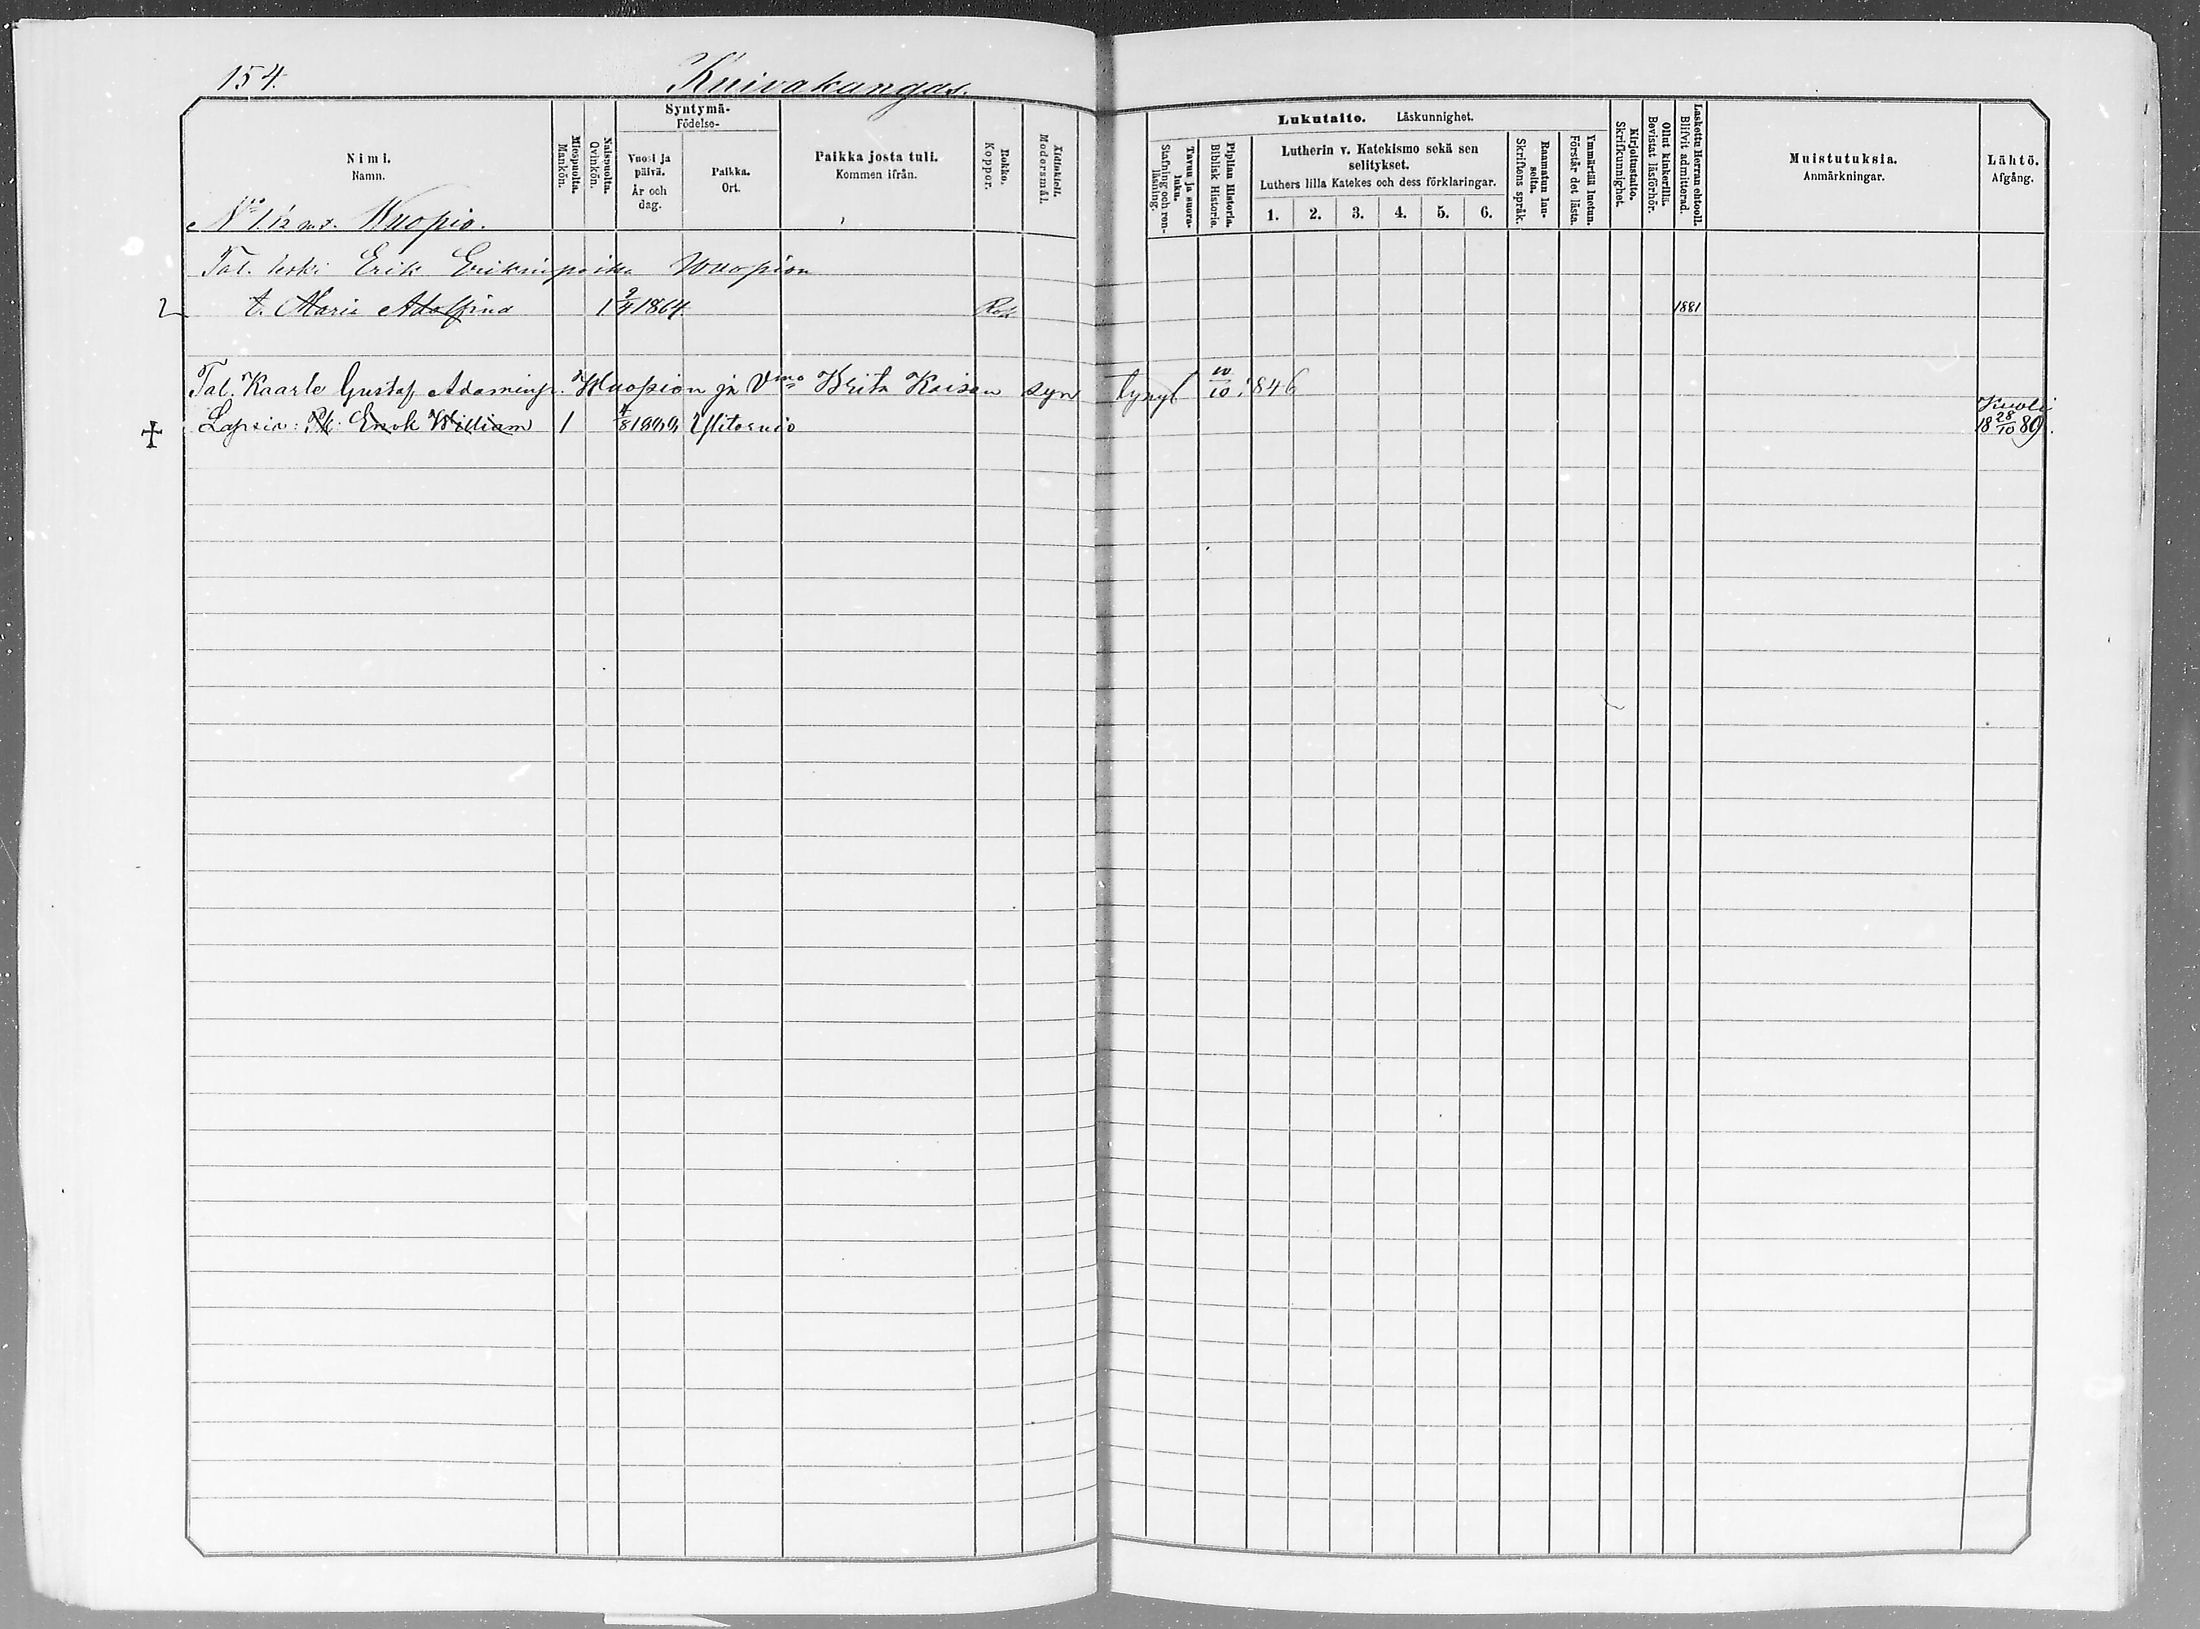 154. Kuivakangas.
Nimi. Namn.
Miespuolta. Mankön.
Naispuolta. Qvinkön.
Syntymä- Födelse-
Vuosi ja päivä. År och dag.
Paikka. Ort.
Paikka josta tuli. Kommen ifrån.
Rokko. Koppor.
Äidinkieli. Modersmål.
Lukutaito. Läskunnighet.
Tavuu ja suoraluku. Stafning och renläsning.
Piplian Historia. Biblisk Historie.
Lutherin v. Katekismo sekä sen selitykset.
Luthers lilla Katekes och dess förklaringar.
1. 2. 3. 4. 5. 6.
Raamatun lauseita. Skriftens språk.
Ymmärtää luetun. Förstår det lästa.
Kirjoitustaito. Skrifkunnighet.
Ollut kinkerillä. Bevistat läsförhör.
Laskettu Herran ehtooll. Blifvit admitterad.
Muistutuksia. Anmärkningar.
Lähtö. Afgång.
No 1. 1/2 Wuopio.
Tal. leski Erik Erikinpoika Wuopion
2 t. Maria Adolfina 1 9/4 1864 Rok. 1881
Tal. Kaarle Gustaf Adaminp. Wuopion ja Vmo Brita Kaisan syn 10/10 1846
Lapsia: Enok William 1 Ylitornio Kuoli 18 28/10 89.